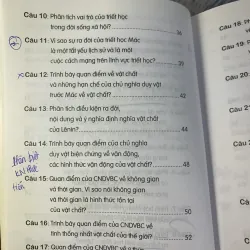 Câu 10: Phân tích vai trò của triết học
trong đời sống xã hội? 36
Câu 11: Vì sao sự ra đời của triết học Mác
là một tất yếu lịch sử và là một
cuộc cách mạng trên lĩnh vực triết học? 39
Câu 12: Trình bày quan điểm về vật chất
và những hạn chế của chủ nghĩa duy vật
trước Mác về vật chất? 42
Câu 13: Phân tích điều kiện ra đời,
nội dung và ý nghĩa định nghĩa vật chất
của Lênin? 44
Câu 14: Trình bày quan điểm của chủ nghĩa
duy vật biện chứng về vận động,
các hình thức vận động của vật chất? 48
Câu 15: Quan điểm của CNDVBC về không gian
và thời gian. Vì sao nói không gian
và thời gian là hình thức tồn tại
của vật chất? 50
Câu 16: Trình bày quan điểm của CNDVBC về
tính thống nhất vật chất của thế giới? 52
Câu 17: Quan điểm của CNDVBC về
Câu 18:
Câu 19:
Câu 20
Câu 21
Câu 2
Câu